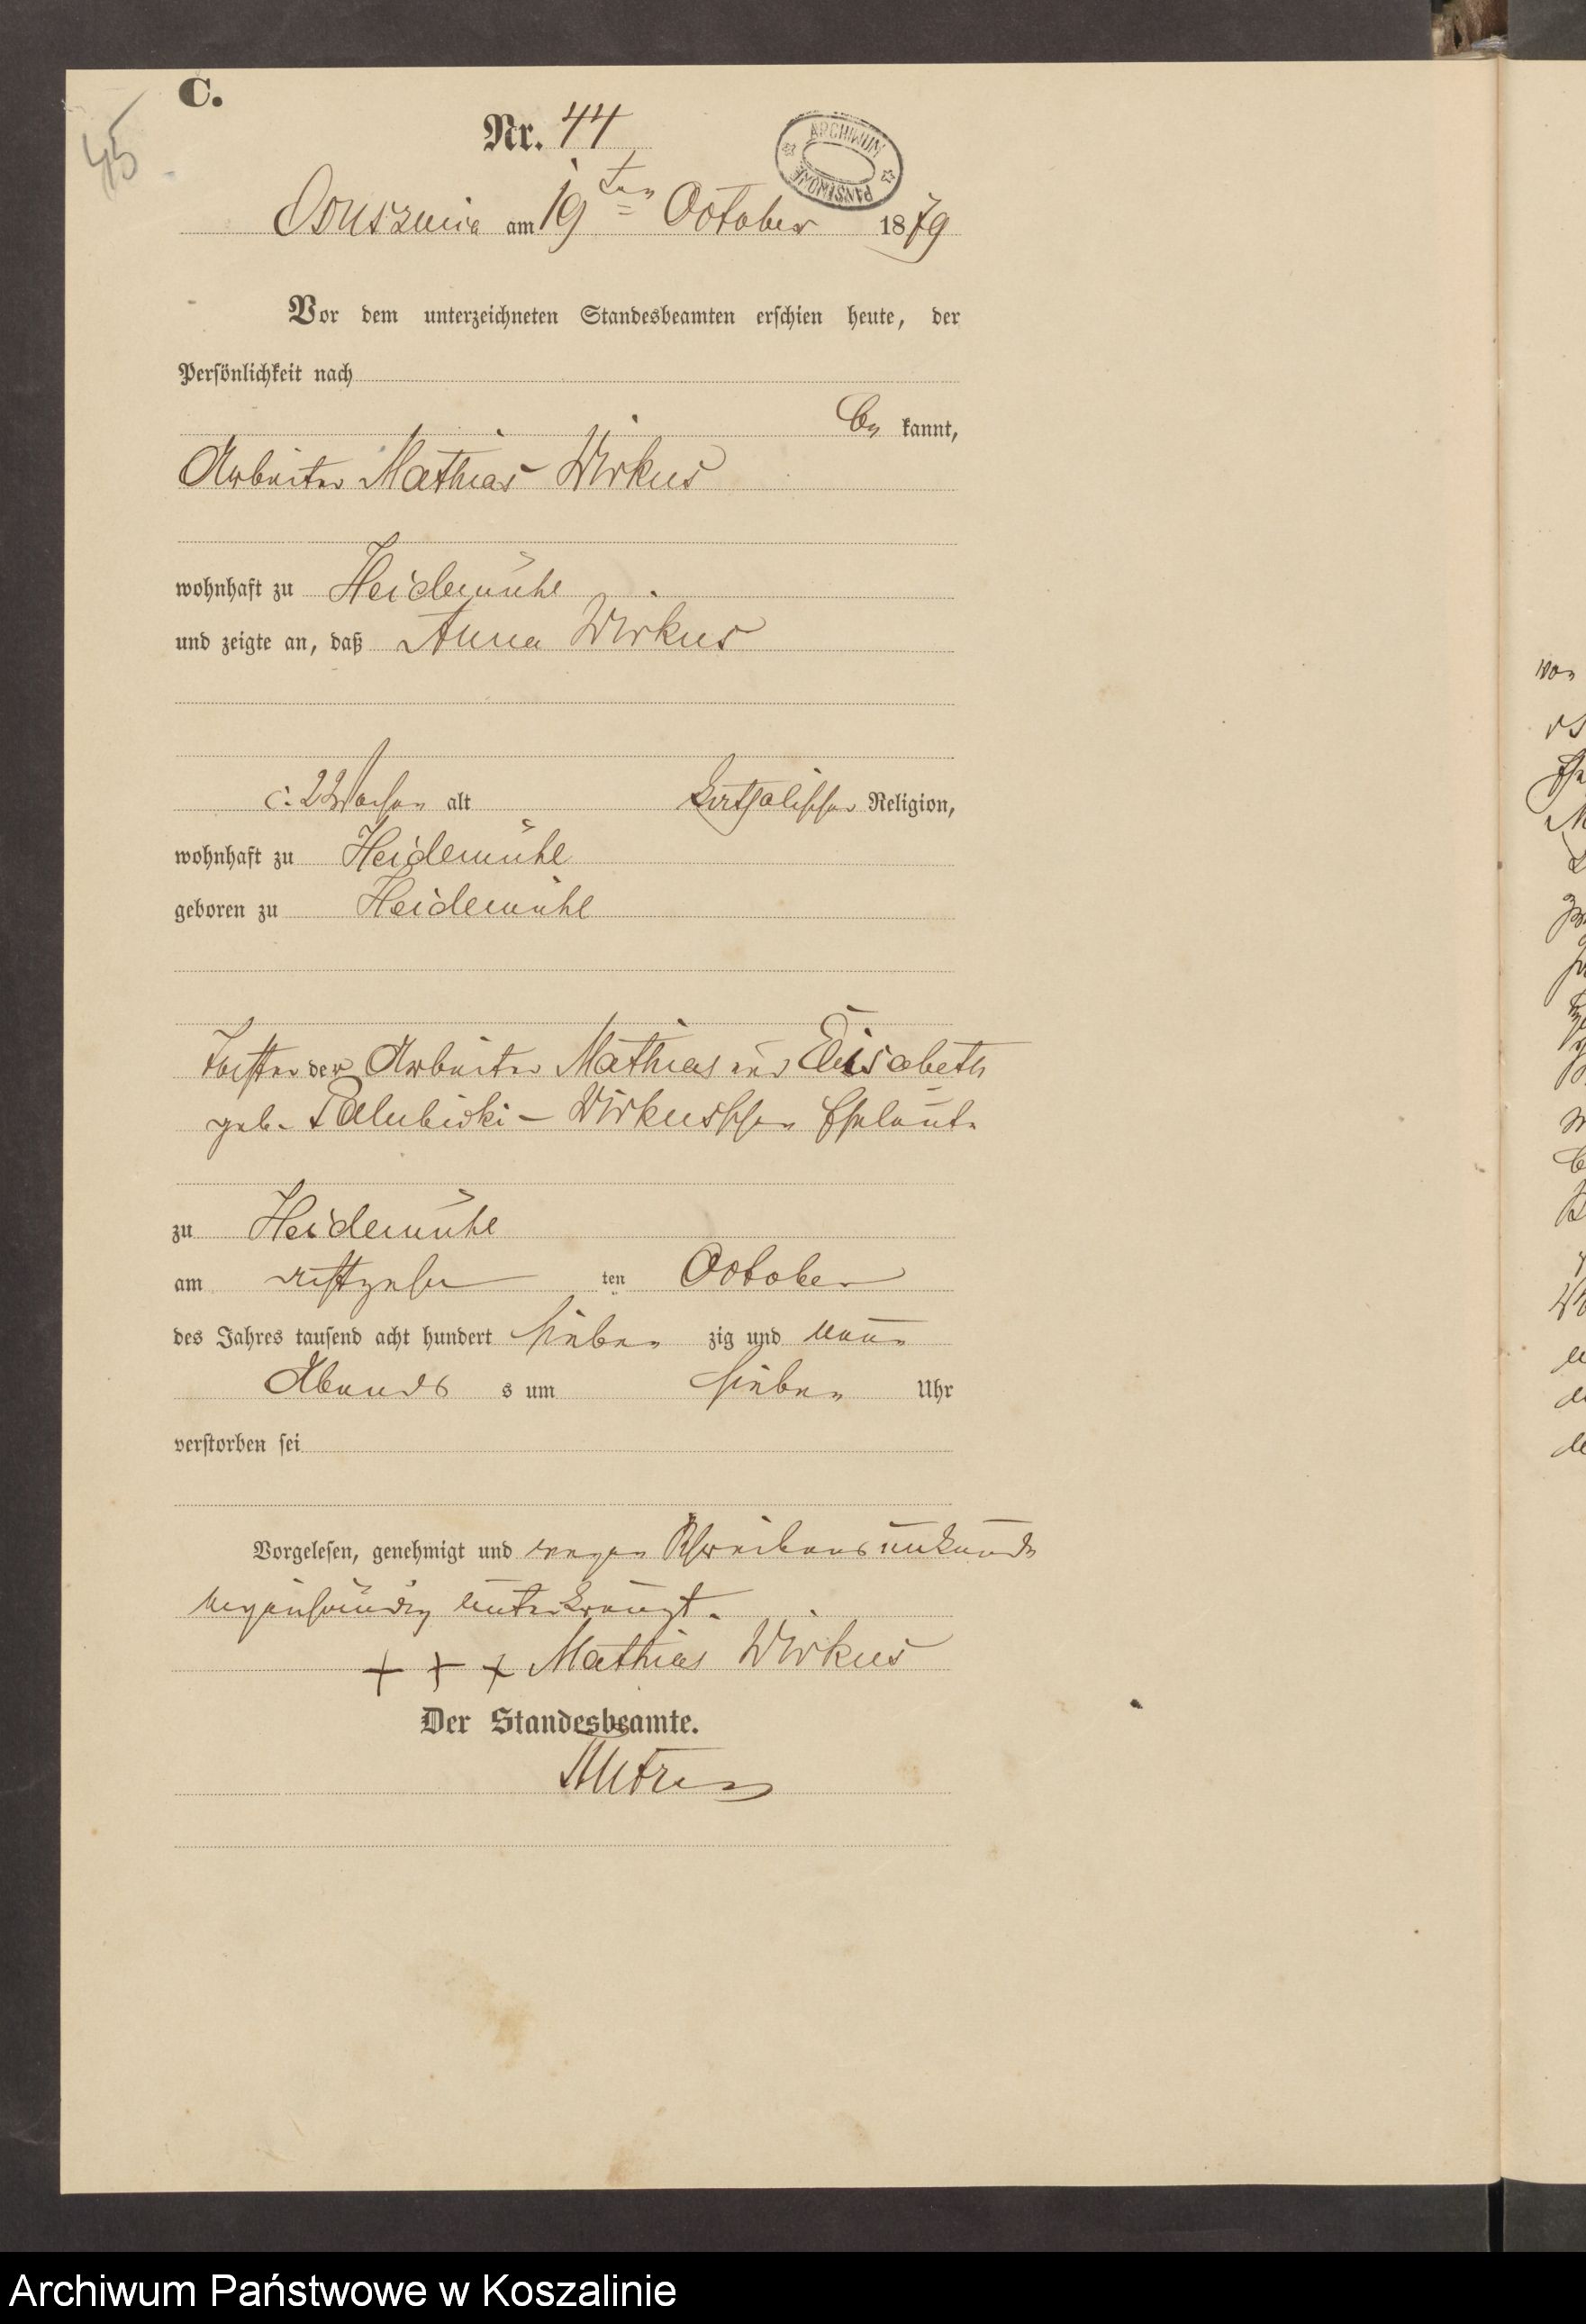 C.
45
Nr. 44
ARCHIWUM PAŃSTWOWE
Ossuszniça am 19ten October 1879
Vor dem unterzeichneten Standesbeamten erschien heute, der
Persönlichkeit nach
be kannt,
Arbeiter Mathias Wirkus
wohnhaft zu Heidemühl
und zeigte an, daß Anna Wirkus
c. 2 Wochen alt katholischer Religion,
wohnhaft zu Heidemühl
geboren zu Heidemühl
Tochter der Arbeiter Mathias und Elisabeth
geb. Palubicki - Wirkusschen Eheleute
zu Heidemühl
am achtzehn ten October
des Jahres tausend acht hundert sieben zig und neun
Abends s um sieben Uhr
verstorben sei
Vorgelesen, genehmigt und wegen Schreibensunkunde
eigenhändig unterkreuzt.
+ + + Mathias Wirkus
Der Standesbeamte.
von
Archiwum Państwowe w Koszalinie